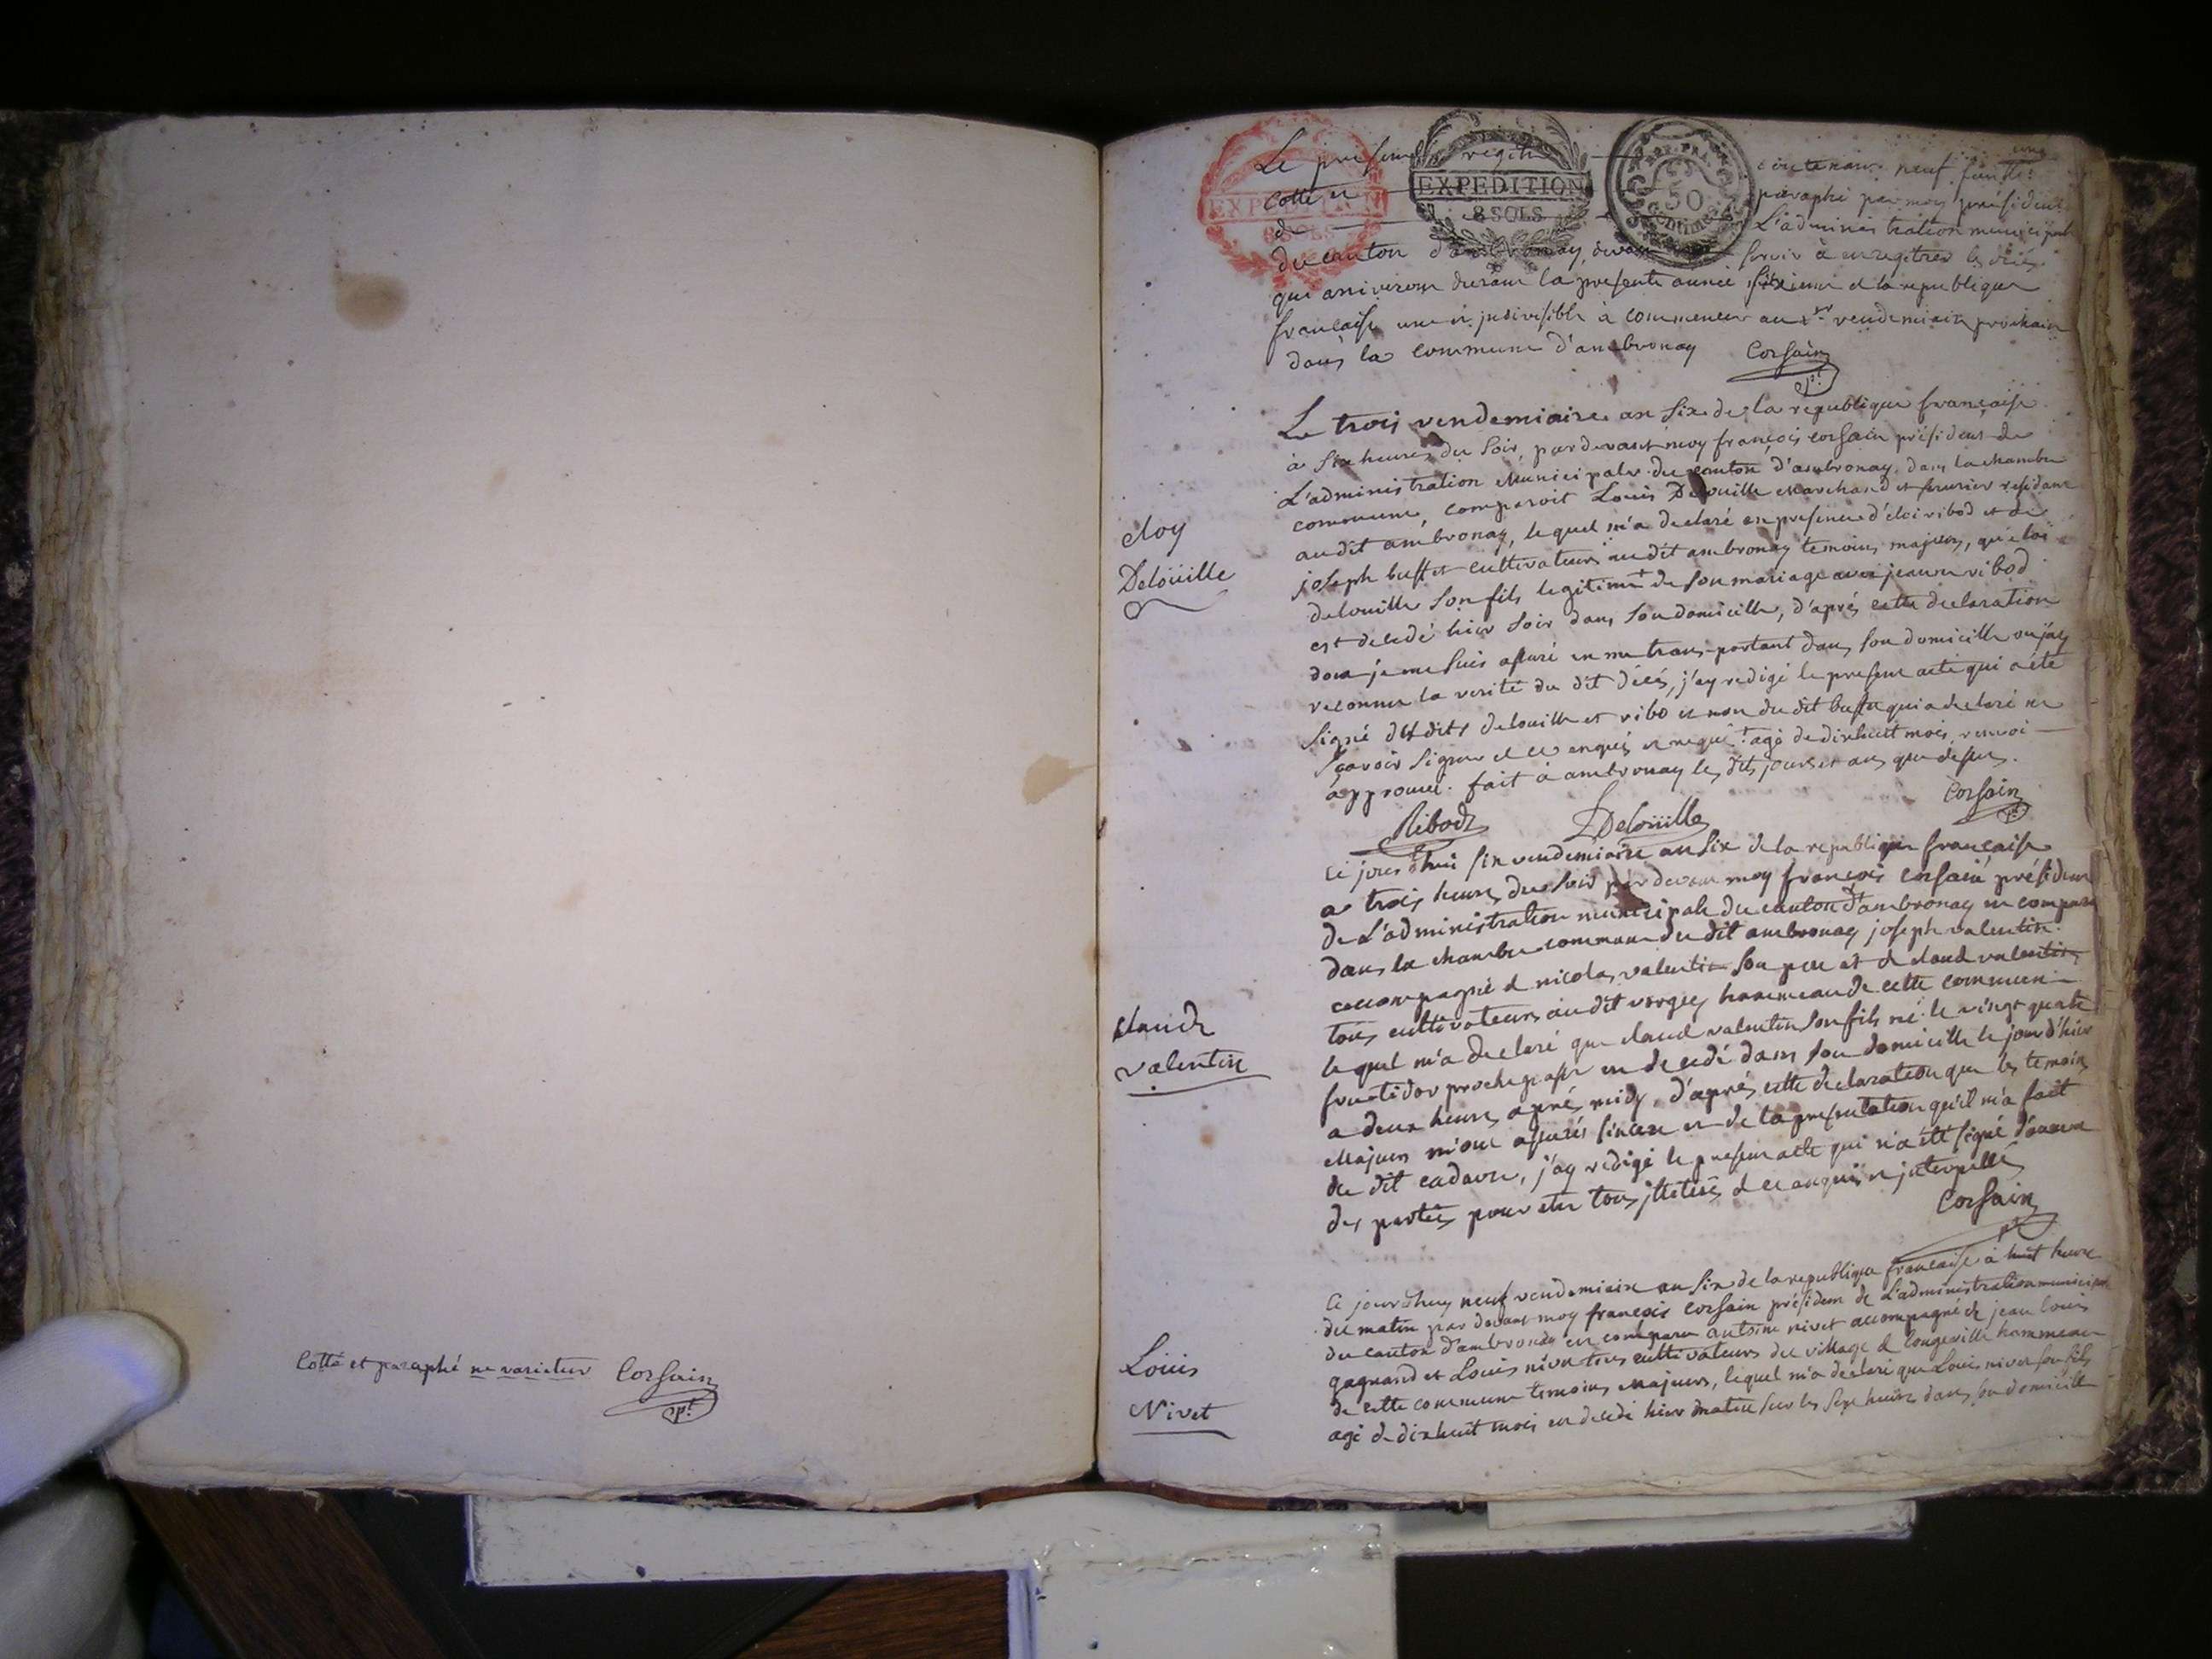 Cotté et paraphé ne varietur Corsain
pt
une
Le present registre contenant neuf feuillets
EXPEDITION
8 SOLS
EXPEDITION
8 SOLS
REP. FRA.
50
Centimes
cotté et paraphé par moy président
de L'administration municipale
du canton d'ambronay, devant servir à enregitrer les décés
qui ariveront durant la presente année sixieme de la republique
française une et indivisible à commencer au 1er vendemiaire prochain
dans la commune d'ambronay Corsain
pt
Le trois vendemiaire an six de la republique française
à six heures du soir, pardevant moy françois corsain président de
L'administration Municipale du canton d'ambronay, dans la chambre
commune, comparoit Louis Deloüille marchand et serurier residant
audit ambronay, lequel m'a declaré en presence d'éloi ribod et de
eloy
joseph buffet cultivateurs audit ambronay temoins majeurs, qu'eloi
Deloüille
delouille son fils legitime de son mariage avec jeanne ribod
est decedé hier soir dans son domicille, d'aprés cette declaration
dont je me suis assuré en me transportant dans son domicille ou j'ay
reconnu la verité du dit décés, j'ay redigé le present acte qui a été
signé desdits delouille et ribo et non du dit buffet qui a declaré ne
sçavoir signer de ce enquis et requis agé de dixhuit mois, renvoi
approuvé. fait à ambronay les dits jours et an que dessus.
Ribod L Deloüille Corsain
pt
Ce jourd'hui six vendemiaire an six de la republique française
a trois heures du soir par devant moy françois corsain président
de L'administration municipale du canton d'ambronay est comparu
dans la chambre commune du dit ambronay joseph valentin
accompagné de nicolas valentin son pere et de claud valentin
tous cultivateurs audit vorgey hammeau de cette commune
claude
lequel m'a declaré que claud valentin son fils né le vingt quatre
valentin
fructidor proche passé est decedé dans son domicille le jour d'hier
a deux heures aprés midy, d'aprés cette declaration que les temoins
Majeurs m'ont assurés sincere et de la presentation qu'il m'a fait
du dit cadavre, j'ay redigé le present acte qui n'a été signé d'aucune
des parties pour etre tous illeterés de ce enquis et interpellés
Corsain
pt
Ce jourdhuy neuf vendemiaire an six de la republique française à huit heure
du matin par devant moy françois corsain président de L'administration municipale
du canton d'ambronay est comparu antoine nivet accompagné de jean louis
Loüis
gagnard et Louis nivet tous cultivateurs du village de longeville hammeau
de cette commune temoins Majeurs, lequel m'a declaré que Louis nivet son fils
Nivet
agé de dixhuit mois est decedé hier matin sur les sept heures dans son domicille